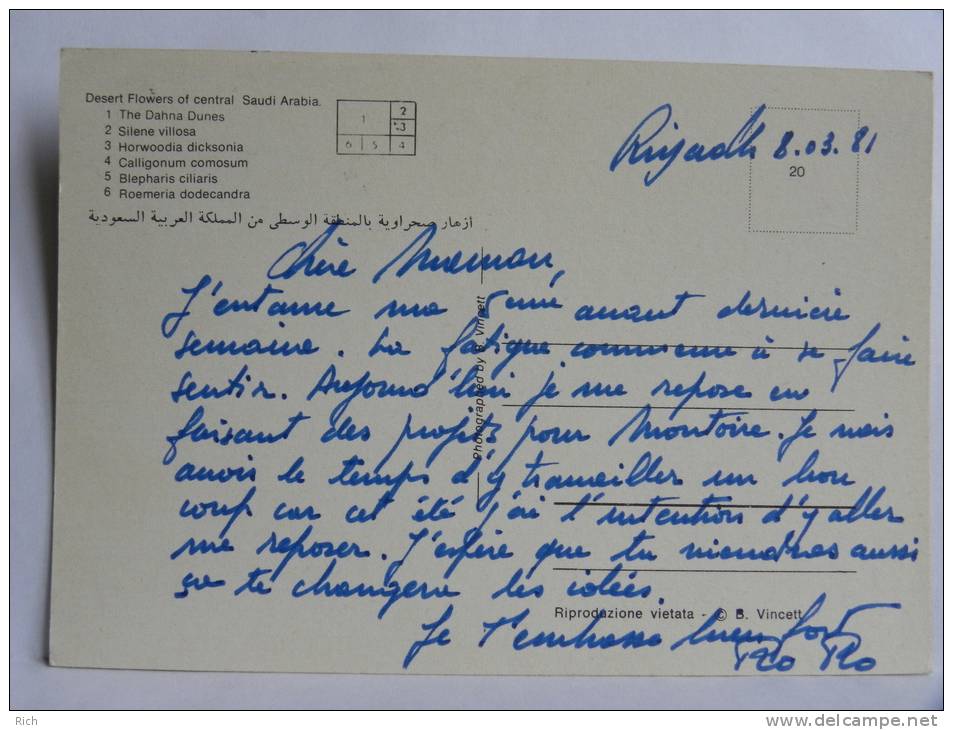 Desert Flowers of central Saudi Arabia.
1 The Dahna Dunes
2 Silene villosa
3 Horwoodia dicksonia
4 Calligonum comosum
5 Blepharis ciliaris
6 Roemeria dodecandra
1 2
3
6 5 4
أزهار صحراوية بالمنطقة الوسطى من المملكة العربية السعودية
Riyadh 8.03.81
20
Chère Maman,
J'entame ma 5ème avant dernière
semaine. La fatigue commence à se faire
sentir. Aujourd'hui je me repose en
faisant des projets pour Montoire. Je vais
avoir le temps d'y travailler un bon
coup car cet été j'ai l'intention d'y aller
me reposer. J'espère que tu viendras aussi
ça te changera les idées.
Je t'embrasse bien fort
Photographed by B. Vincett
Riproduzione vietata - © B. Vincett
Rich
www.delcampe.net